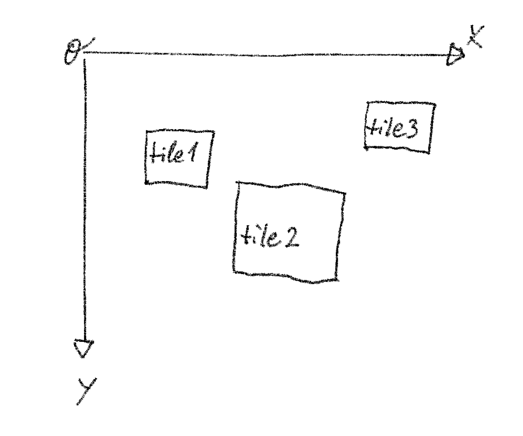 O
X
tile3
tile1
tile2
Y